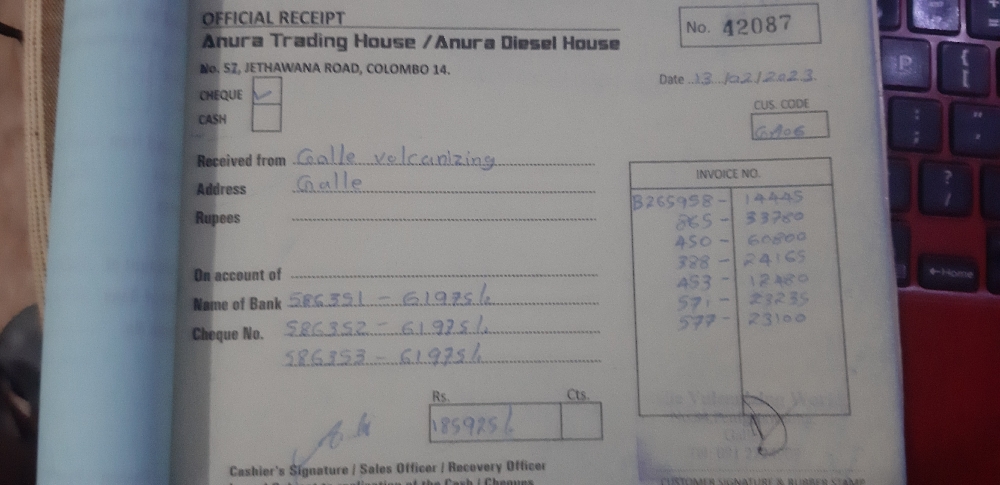 OFFICIAL RECEIPT
No. 42087
Anura Trading House / Anura Diesel House
No. 52, JETHAWANA ROAD, COLOMBO 14.
Date 13/02/2023
CHEQUE ✓
CASH
CUS. CODE
G106
Received from Galle volcanizing
Address Galle
Rupees
On account of
Name of Bank 586351 - 61975/-
Cheque No. 586352 - 61975/-
586353 - 61975/-
INVOICE NO.
B265958 - 14445
865 - 33780
450 - 60800
388 - 24165
453 - 12480
571 - 23235
577 - 23100
Rs. Cts.
185925/-
Cashier's Signature / Sales Officer / Recovery Officer
CUSTOMER SIGNATURE & RUBBER STAMP
P
{
[
:
;
"
?
/
Home